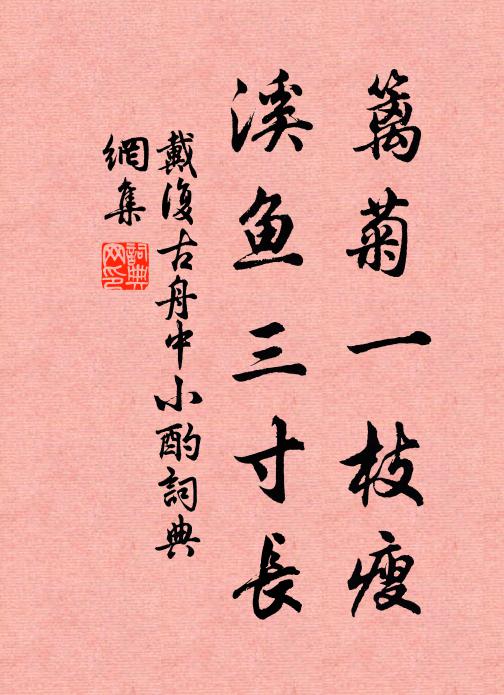 篱菊一枝瘦
溪鱼三寸長
戴復古舟中小酌詞典
網集
詞典
网印